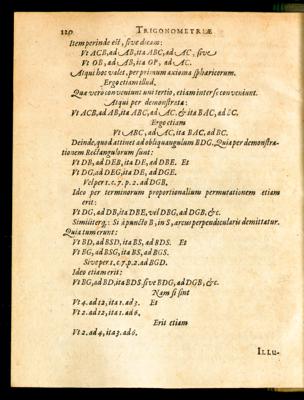 120 TRIGONOMETRIÆ
Item perinde est, sive dicam:
Vt ACB, ad AB, ita ABC, ad AC, sive
Vt OB, ad AB, ita OP, ad AC.
Atqui hoc valet, per primum axioma sphæricorum.
Ergo etiam illud.
Quæ vero conveniunt uni tertio, etiam inter se conveniunt.
Atqui per demonstrata:
Vt ACB, ad AB, ita ABC, ad AC, & ita BAC, ad BC.
Ergo etiam
Vt ABC, ad AC, ita BAC, ad BC.
Deinde, quod attinet ad obliquangulum BDG, Quia per demonstra-
tionem Rectangulorum sunt:
Vt DB, ad DEB, ita DE, ad DBE. Et
Vt DG, ad DEG, ita DE, ad DGE.
Vel per 1. c. 7. p. 2. ad DGB,
Ideo per terminorum proportionalium permutationem etiam
erit:
Vt DG, ad DB, ita DBE, vel DBG, ad DGB, &c.
Similiterq; Si à puncto B, in S, arcus perpendicularis demittatur.
Quia tum erunt:
Vt BD, ad BSD, ita BS, ad BDS. Et
Vt BG, ad BSG, ita BS, ad BGS.
Sive per 1. c. 7. p. 2. ad BGD.
Ideo etiam erit:
Vt BG, ad BD, ita BDS. sive BDG, ad DGB, &c.
Nam si sint
Vt 4. ad 12, ita 1. ad 3. Et
Vt 2. ad 12, ita 1. ad 6.
Erit etiam
Vt 2. ad 4, ita 3. ad 6.
ILLU-